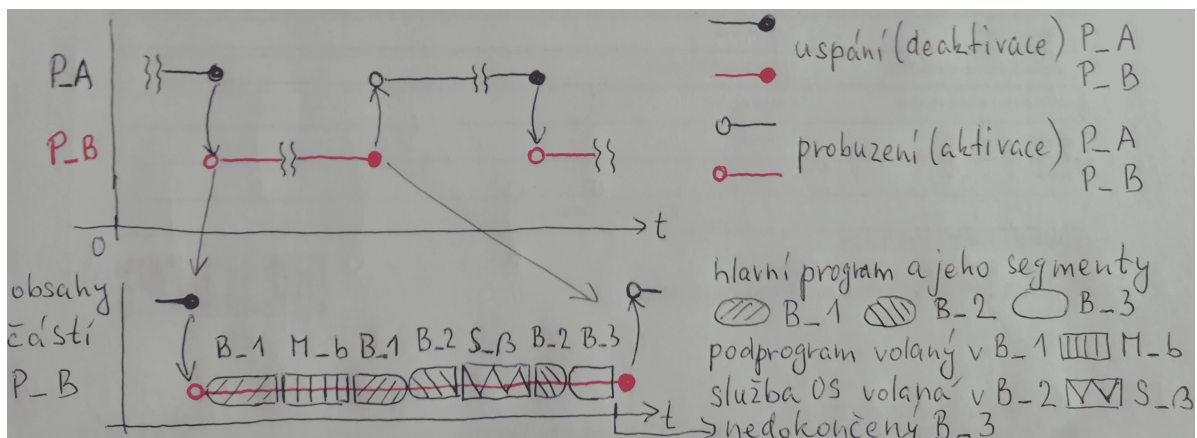 P_A
P_B
0
t
uspání (deaktivace) P_A
P_B
probuzení (aktivace) P_A
P_B
obsahy
částí
P_B
B_1 M_b B_1 B_2 S_β B_2 B_3
t
hlavní program a jeho segmenty
B_1 B_2 B_3
podprogram volaný v B_1 M_b
služba OS volaná v B_2 S_β
nedokončený B_3